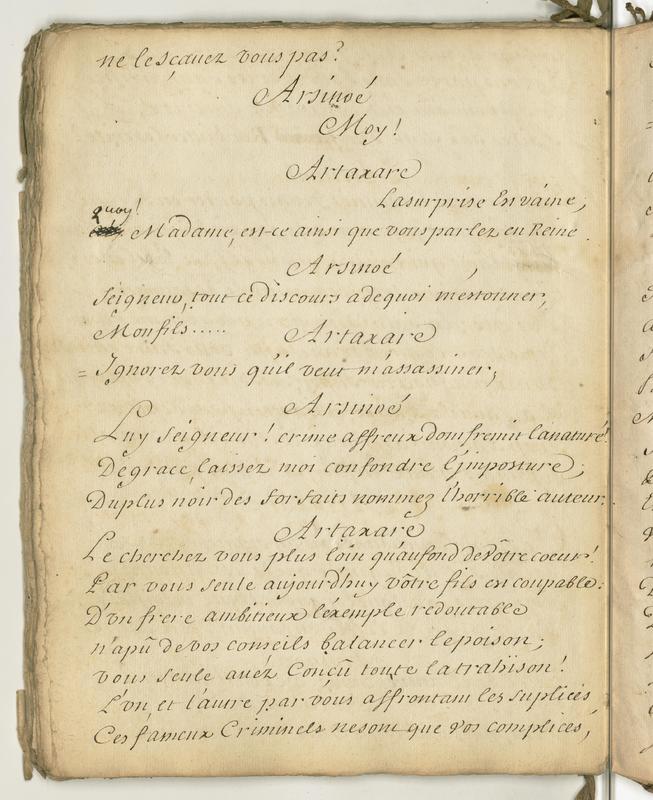 ne le sçauez vous pas?
Arsinoé
Moy!
Artaxare
La surprise En vaine,
quoy!
Madame, est-ce ainsi que vous parlez en Reine
Arsinoé
Seigneur, tout ce discours a de quoi m'estonner,
Mon fils.....
Artaxare
= Ignorez vous qu'il veut m'assassiner;
Arsinoé
Luy Seigneur! crime affreux dont fremit la nature!
De grace, laissez moi confondre l'jmposture;
Du plus noir des forfaits nommez l'horrible auteur.
Artaxare
Le cherchez vous plus loin qu'au fond de vôtre coeur!
Par vous seule aujourd'huy vôtre fils est coupable:
D'vn frere ambitieux l'éxemple redoutable
n'a pû de vos conseils balancer le poison;
vous seule auéz Conçû toute la trahison!
L'vn et l'autre par vous affrontant les suplices,
Ces fameux Criminels ne sont que vos complices,